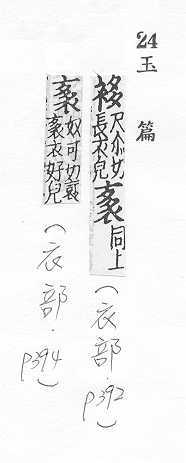 24
玉篇
袳尺尒切長衣皃袲同上(衣部.P392)
袲奴可切袲袲衣好皃(衣部.P394)